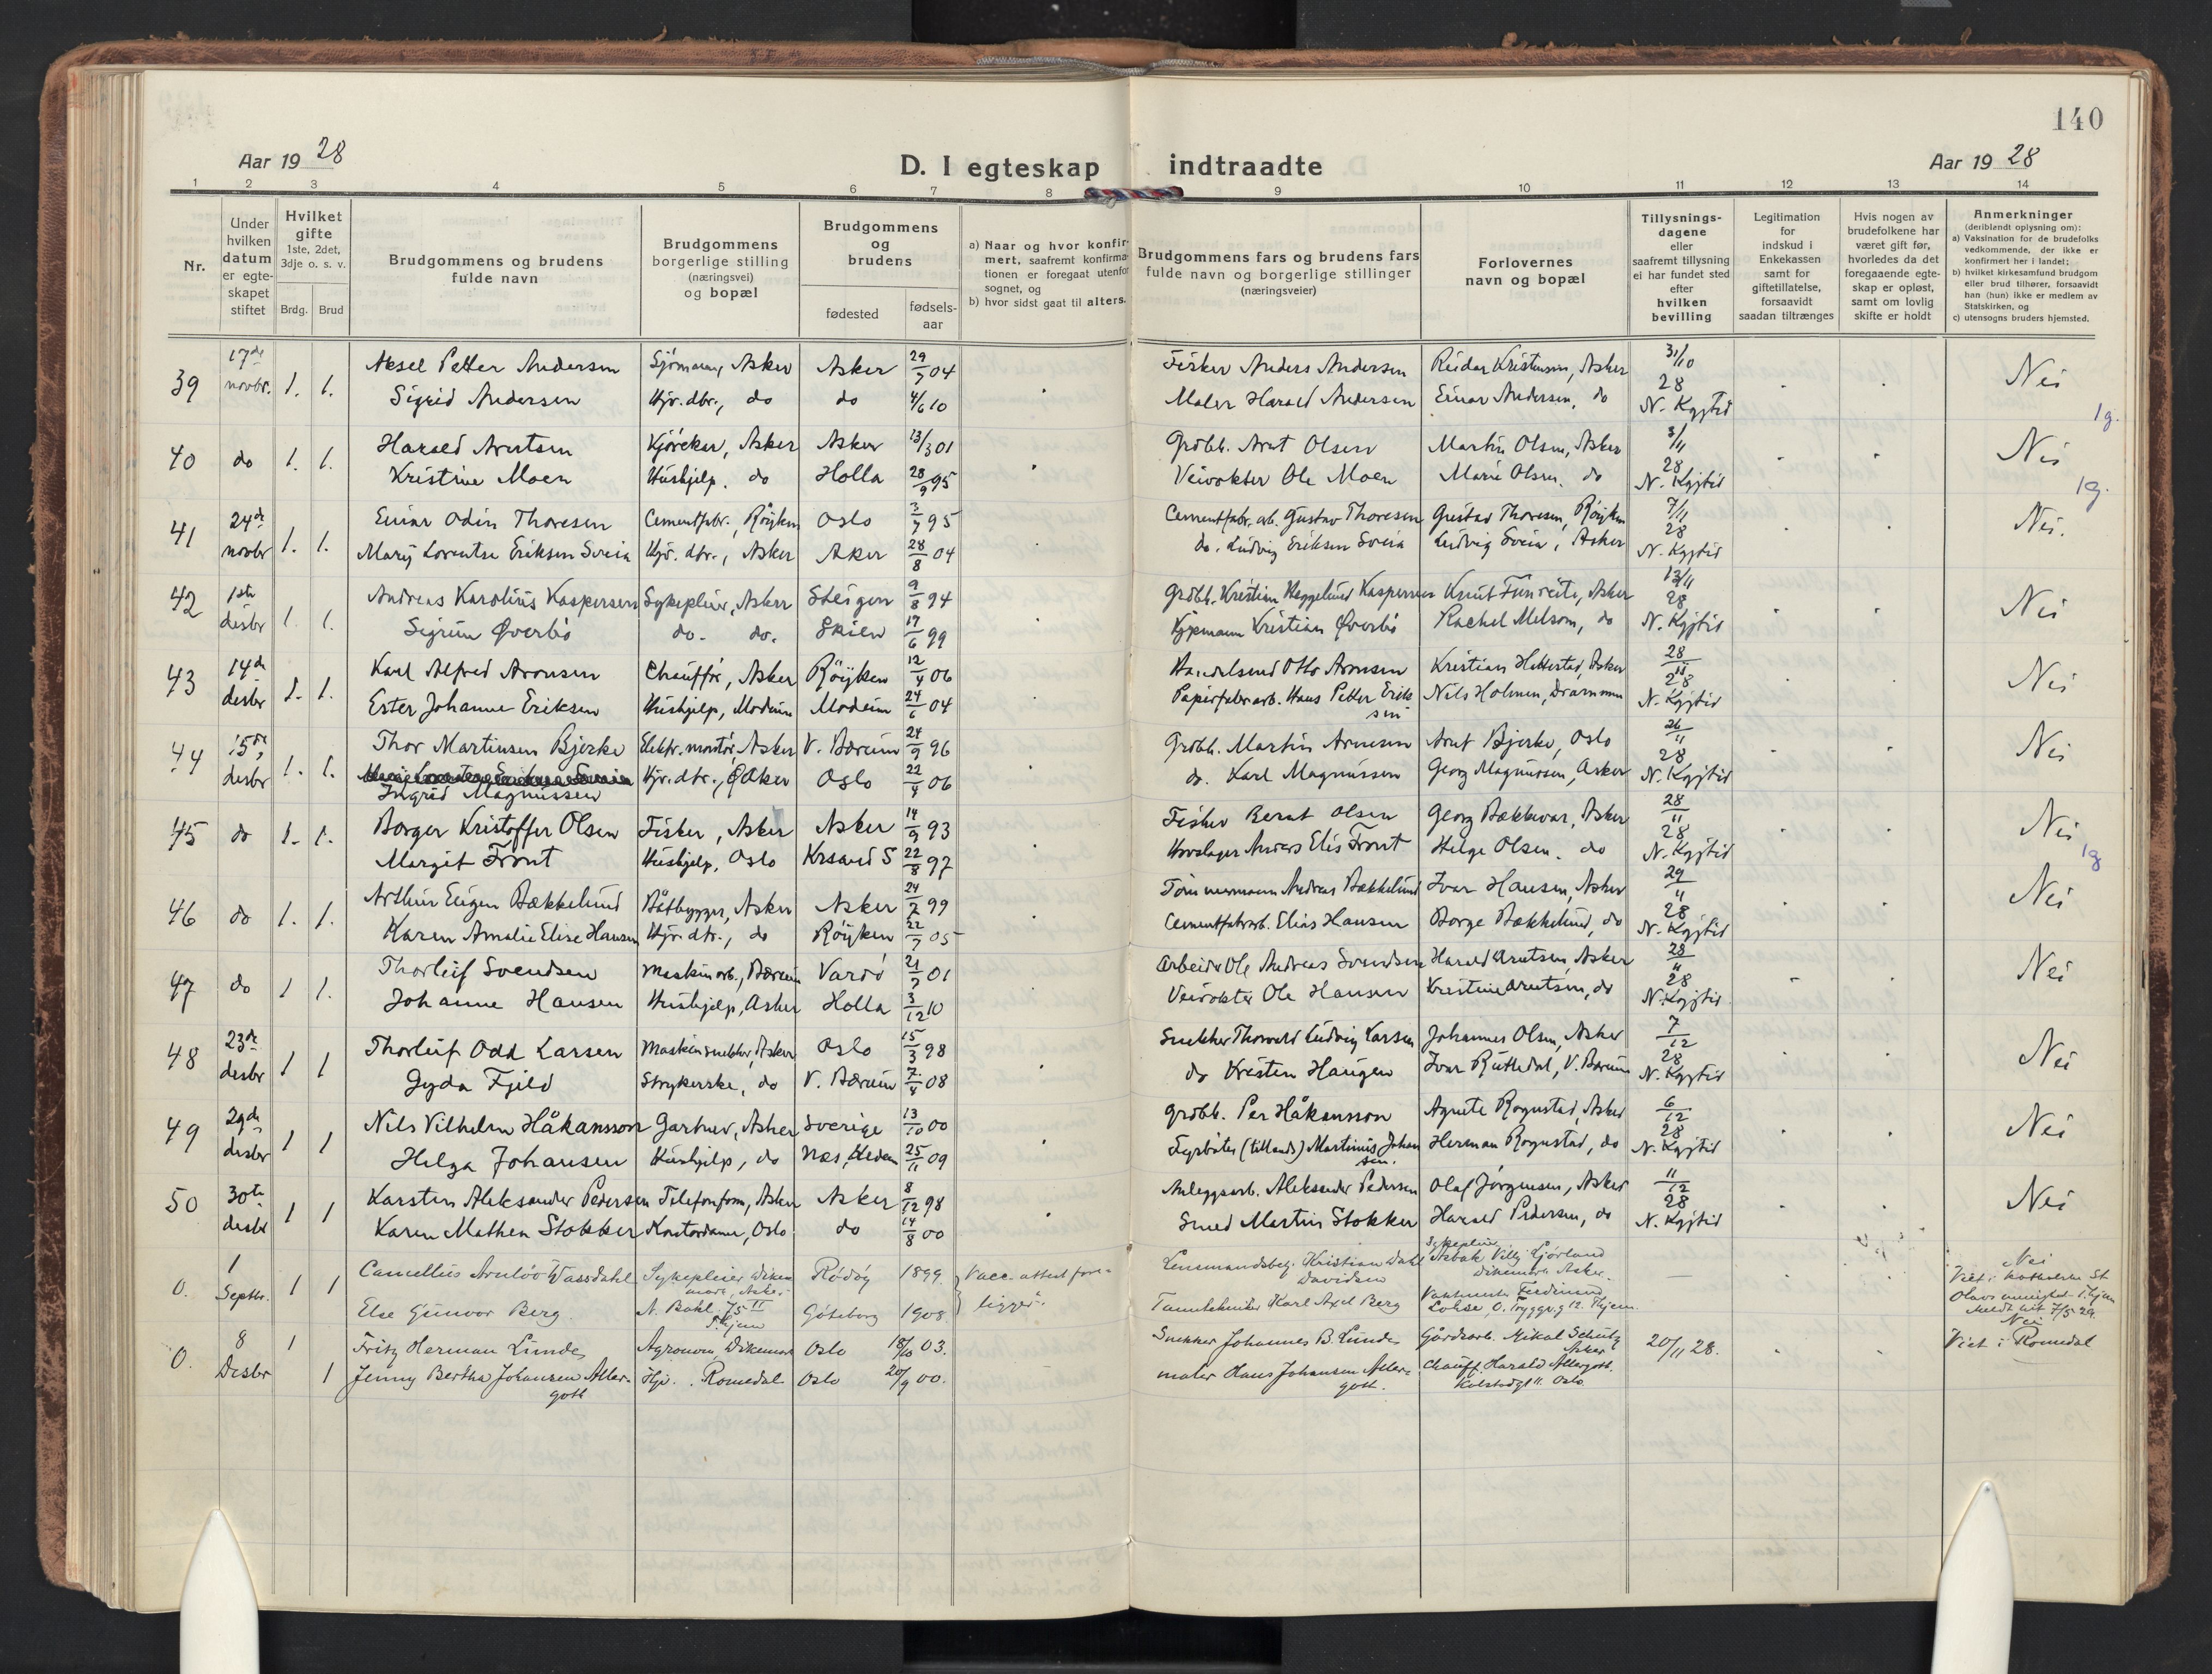 140
Aar 19 28
D. I egteskap indtraadte
Aar 19 28
1 2 3 4 5 6 7 8 9 10 11 12 13 14
Nr.
Under hvilken datum er egte-skapet stiftet
Hvilket gifte 1ste, 2det, 3dje o. s. v.
Brdg. Brud
Brudgommens og brudens fulde navn
Brudgommens borgerlige stilling (næringsvei) og bopæl
Brudgommens og brudens
fødested
fødsels-aar
a) Naar og hvor konfir-mert, saafremt konfirma-tionen er foregaat utenfor sognet, og
b) hvor sidst gaat til alters.
Brudgommens fars og brudens fars fulde navn og borgerlige stillinger (næringsveier)
Forlovernes navn og bopæl
Tillysnings-dagene eller saafremt tillysning ei har fundet sted efter hvilken bevilling
Legitimation for indskud i Enkekassen samt for giftetillatelse, forsaavidt saadan tiltrænges
Hvis nogen av brudefolkene har været gift før, hvorledes da det foregaaende egte-skap er opløst, samt om lovlig skifte er holdt
Anmerkninger (deriblandt oplysning om):
a) Vaksination for de brudefolks vedkommende, der ikke er konfirmert her i landet;
b) hvilket kirkesamfund brudgom eller brud tilhører, forsaavidt han (hun) ikke er medlem av Statskirken, og
c) utensogns bruders hjemsted.
39 17de novbr. 1. 1. Aksel Petter Andersen Sjømann, Asker Asker 29/7 04 Fisker Anders Andersen Reidar Kristensen, Asker 31/10 28 N. Kgjtid Nei
Sigrid Andersen Hjv. dtr., do do 4/6 10 Maler Harald Andersen Einar Andersen, do
1g.
40 do 1. 1. Harald Arntsen Kjøreker, Asker Asker 13/3 01 Grdbb. Arnt Olsen Martin Olsen, Asker 3/11 28 N. Kgjtid Nei
Kristine Moen Hushjelp, do Holla 28/9 95 Veivokter Ole Moen Marie Olsen, do
1g.
41 24de novbr 1. 1. Einar Odin Thoresen Cementfabr., Røyken Oslo 3/7 95 Cementfabr. arb. Gustav Thoresen Gustav Thoresen, Røyken 7/11 28 N. Kgjtid Nei.
Mary Lorentse Eriksen Sveia Hjv. dtr., Asker Aker 28/8 04 do. Ludvig Eriksen Sveia Ludvig Sveia, Asker
42 1ste desbr 1. 1. Andreas Karolius Kaspersen Sykepleier, Asker Steigen 9/8 94 Grdbb. Kristian Heggelund Kaspersen Knut Funreite, Asker 13/11 28 N. Kgjtid Nei
Sigrun Øverbø do. do. Skien 17/6 99 Kjøpmann Kristian Øverbø Rachel Melsom, do
43 14de desbr 1. 1. Karl Alfred Aronsen Chauffør, Asker Røyken 12/4 06 Handelsmd Otto Aronsen Kristian Hettestad, Asker 28/11 28 N. Kgjtid Nei
Ester Johanne Eriksen Hushjelp, Modum Modum 24/6 04 Papirfabr. arb. Hans Petter Eriksen Nils Holmen, Drammen
44 15de desbr 1. 1. Thor Martinsen Bjerke Elektr. montør, Asker V. Bærum 24/9 96 Grdbb. Martin Arnesen Arnt Bjerke, Oslo 26/11 28 N. Kgjtid Nei
Ingrid Magnussen Hjv. dtr., Ø Aker Oslo 22/4 06 do. Karl Magnussen Georg Magnussen, Asker
45 do 1. 1. Borger Kristoffer Olsen Fisker, Asker Asker 14/9 93 Fisker Bernt Olsen Georg Bækkevar, Asker 28/11 28 N. Kgjtid Nei
Margit Front Hushjelp, Oslo Krsand S 22/8 97 Hovslager Anders Elis Front Helge Olsen, do
1g
46 do 1. 1. Arthur Eugen Bækkelund Båtbygger, Asker Asker 24/2 99 Tømmermann Andreas Bækkelund Ivar Hansen, Asker 29/11 28 N. Kgjtid Nei
Karen Amalie Elise Hansen Hjv. dtr., do Røyken 22/7 05 Cementfabr. arb. Elias Hansen Borge Bækkelund, do
47 do 1 1. Thorleif Svendsen Maskinarb., Bærum Vardø 21/7 01 Arbeider Ole Andreas Svendsen Harald Arntsen, Asker 28/11 28 N. Kgjtid Nei
Johanne Hansen Hushjelp, Asker Holla 3/12 10 Veivokter Ole Hansen Kristine Arntsen, do
48 23de desbr 1 1 Thorleif Odd Larsen Maskinsnekker, Asker Oslo 15/3 98 Snekker Thorvald Ludvig Larsen Johannes Olsen, Asker 7/12 28 N. Kgjtid Nei
Gyda Fjeld Strykerske, do V. Bærum 7/4 08 do Kristen Haugen Ivar Ruttedal, V. Bærum
49 29de desbr 1 1 Nils Vilhelm Håkansson Gartner, Asker Sverige 13/10 00 Grdbb. Per Håkansson Agnete Rognstad, Asker 6/12 28 N. Kgjtid Nei
Helga Johansen Hushjelp, do Næs, Hedem 25/11 09 Fyrbøter (tillands) Martinius Johansen. Herman Rognstad, do
50 30te desbr 1 1 Karsten Aleksander Pedersen Telefonfom, Asker Asker 8/12 98 Anleggsarb. Aleksander Pedersen Olaf Jørgensen, Asker 11/12 28 N. Kgjtid Nei
Karen Mathea Stokker Kontordame, Oslo do 14/8 00 Smed Martin Stokker Harald Pedersen, do
0. 1 Septbr. 1 1 Camellius Arnløv Wassdahl Sykepleier Dikemark, Asker Rødøy 1899 Vacc. attest foreligger. Lensmandsbetj. Kristian Dahl Davidsen Sykepleier Asbak Villy Gjørland Dikemark Asker. — Nei
Else Gunvor Berg. N. Bakl. 75 II T.hjem Göteborg 1908 Tanntekniker Karl Axel Berg Vaktmester Ferdinand Lohse, O. Tryggv. g 12. Thjem. Viet i katholske St Olavs menighet T.hjem Meldt hit 7/5 29.
0. 8 Desbr 1 Fritz Herman Lunde Agronom, Dikemark Oslo 18/10 03. Snekker Johannes B. Lunde Gårdsarb. Mikal Schutz Asker 20/11 28. Nei Viet i Romedal
1 Jenny Bertha Johansen Allergott Hjv. Romedal Oslo 20/9 00. maler Hans Johansen Allergott. Chauff. Harald Allergott. Kolstadgt 11. Oslo.